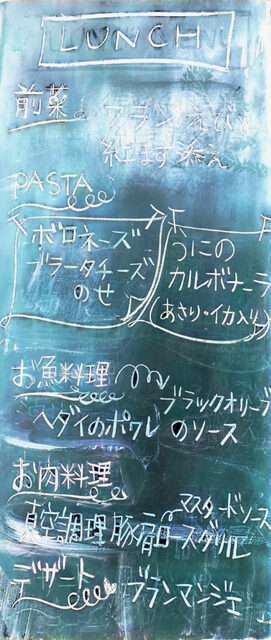 LUNCH
前菜 フランえびと
紅ます添え
PASTA
ボロネーズ
ブラータチーズ
のせ
うにの
カルボナーラ
(あさり・イカ入り)
お魚料理 ブラックオリーブ
ヘダイのポワレ のソース
お肉料理
マスタードソース
真空調理豚肩ロースグリル
デザート ブランマンジェ